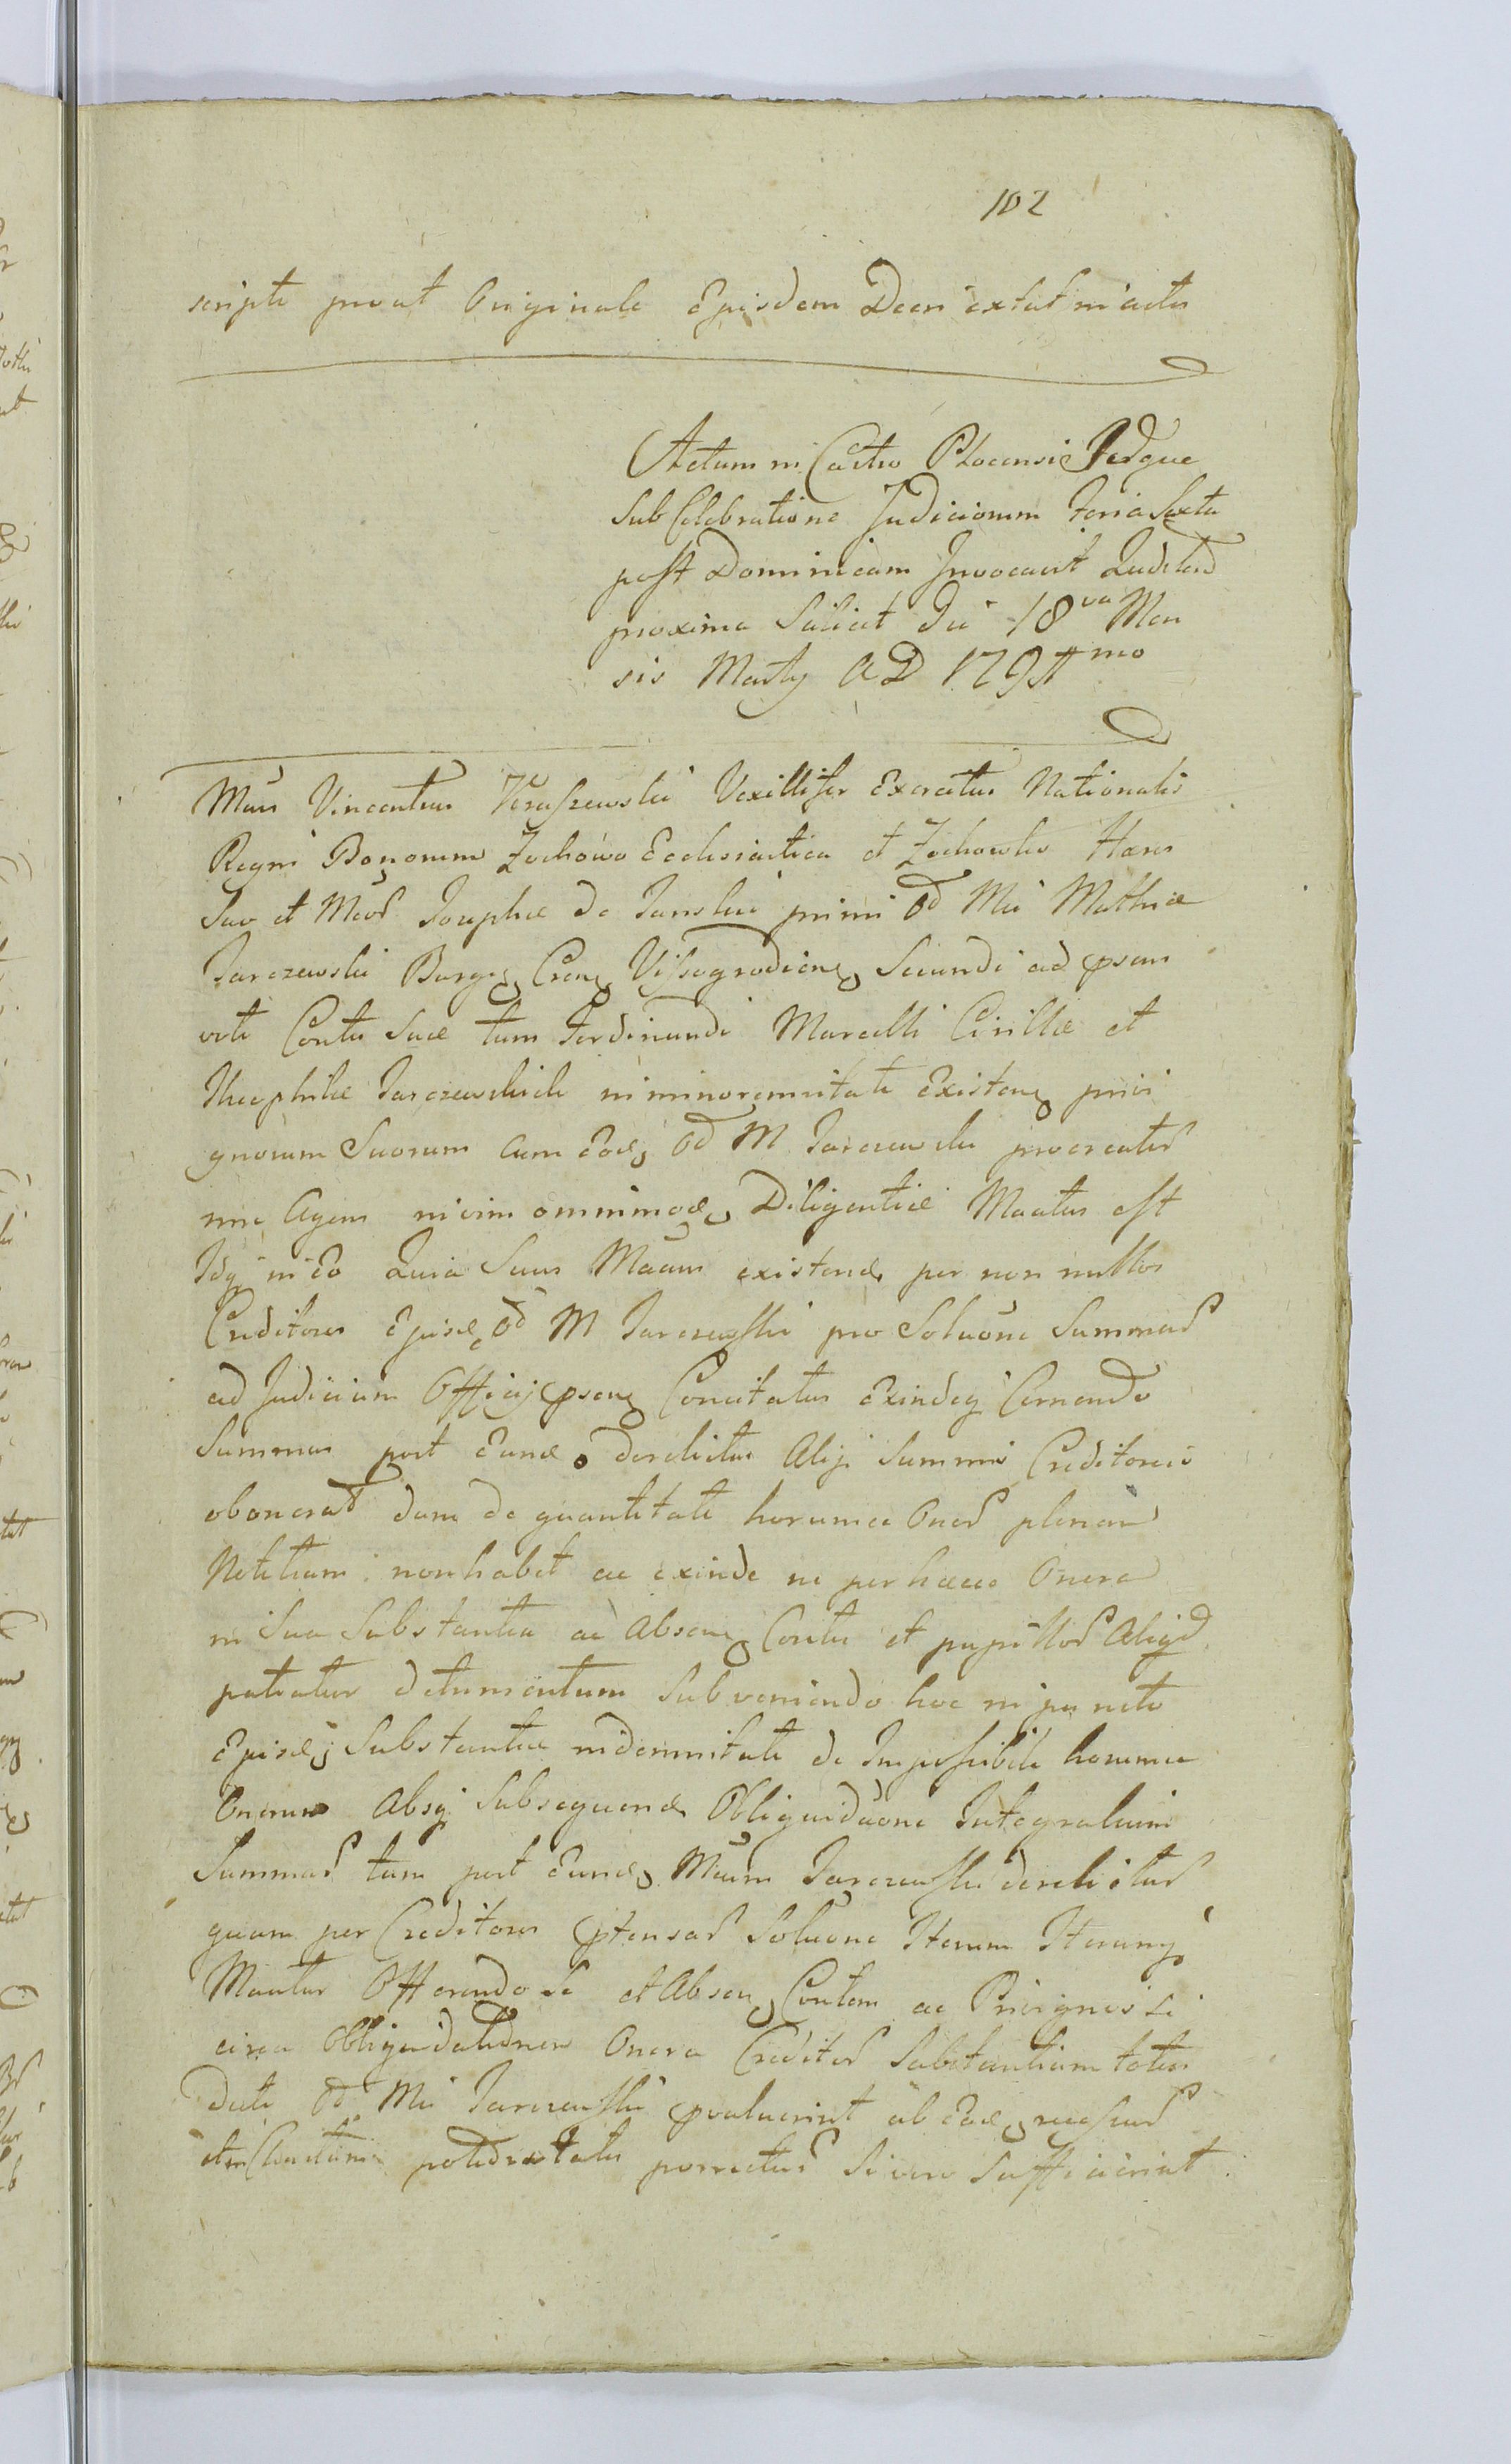 102
scripti prout Originale Ejusdem Decri extat in actis
Actum in Castro Plocensi Idque
sub Celebratione Judiciorum Feria Sexta
post Dominicam Invocavit Quadrad
proxima Scilicet Die 18va Men
sis Martij AD 1791mo
Mcus Vincentius Veraszewski Vexillifer Exercitus Nationalis
Regni Bonorum Zochowo Ecclesiastica et Zochowko Hæres
Suo et Mcæ Josephæ de Janskie primi Od Mci Mathiæ
Jarczewski Burgg Cren Vissogradien Secundi ad psens
voti Contis Suæ tum Ferdinandi Marcelli Cirillæ et
Theophilæ Jarczewskich in minorennitate Existen privi
gnorum Suorum cum Eod Od M Jarczewski procreator
nne Agens in vim omnimod Diligentiæ Mantus est
Idq in Eo Quia Suus Mantus existend per non nullos
Creditores Ejusd Od M Jarczewski pro Soluone Summar
ad Judicium Officij psens Concitatus Exindeq Cernendo
Summas post Eund derelictas Aliq Summis Creditoreis
obonerat dum de quantitate horumce Oner plenam
Notitiam non habet ac exinde ne per hæcce Onera
in Sua Substantia ac Absen Contis et pupillor Aliqd
patiatur detrimentum Subveniendo hoc in puncto
Ejusd Substantiæ indemnitati de Impossibili horumce
Onerum Absq Subsequend Obliquiduone Integralium
Summar tam post Eund Mcum Jarczewski derelictar
quam per Creditores ptensar Soluone Iterum Iterumq
Mantur Offerendo Se et Absen Contem ac Privignos si
circa Obliquidationem Onera Creditor Substantiam totius
dicti Od Mci Jarczewski pvaluerint ab Eod recessur
et in potestatis porrectur Si vero Suffecerint